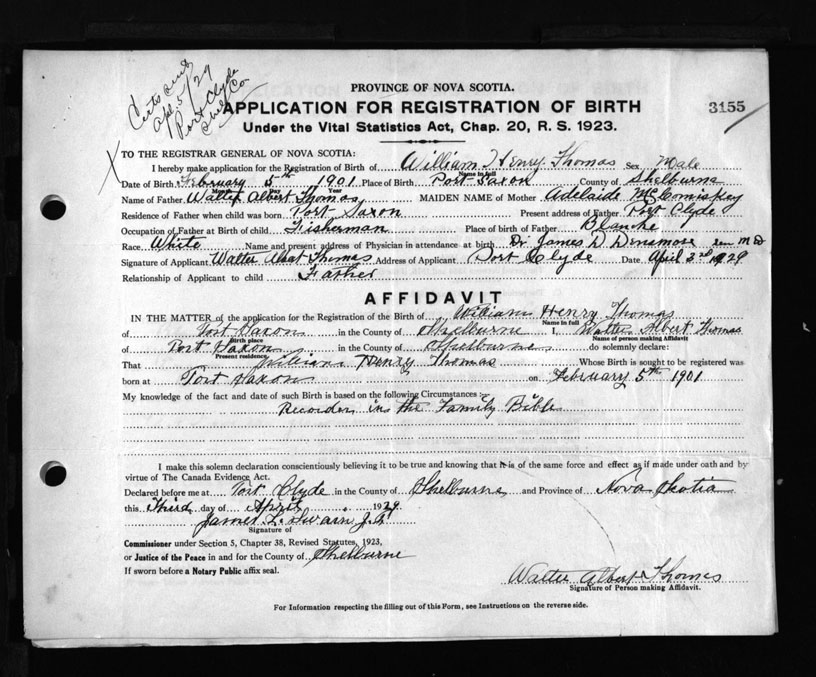 Certs sent
Apl. 5/29
Port Clyde
Shel Co
PROVINCE OF NOVA SCOTIA.
APPLICATION FOR REGISTRATION OF BIRTH
3155
Under the Vital Statistics Act, Chap. 20, R. S. 1923.
TO THE REGISTRAR GENERAL OF NOVA SCOTIA:
I hereby make application for the Registration of Birth of William Henry Thomas Sex Male
Name in full
Date of Birth February 5th 1901 Place of Birth Port Saxon County of Shelburne
Month Day Year
Name of Father Walter Albert Thomas MAIDEN NAME of Mother Adelaide McComiskey
Residence of Father when child was born Port Saxon Present address of Father Port Clyde
Occupation of Father at Birth of child Fisherman Place of birth of Father Blanche
Race White Name and present address of Physician in attendance at birth Dr James D Densmore M D
Signature of Applicant Walter Albert Thomas Address of Applicant Port Clyde Date April 3rd 1929
Relationship of Applicant to child Father
AFFIDAVIT
IN THE MATTER of the application for the Registration of the Birth of William Henry Thomas
Name in full
of Port Saxon in the County of Shelburne I, Walter Albert Thomas
Birth place
Name of person making Affidavit
of Port Saxon in the County of Shelburne do solemnly declare:
Present residence
That William Henry Thomas Whose Birth is sought to be registered was
born at Port Saxon on February 5th 1901
My knowledge of the fact and date of such Birth is based on the following Circumstances:—
Recorded in the Family Bible
I make this solemn declaration conscientiously believing it to be true and knowing that it is of the same force and effect as if made under oath and by
virtue of The Canada Evidence Act.
Declared before me at Port Clyde in the County of Shelburne and Province of Nova Scotia
this Third day of April 1929
James L. Swain J.P.
Signature of
Commissioner under Section 5, Chapter 38, Revised Statutes, 1923,
or Justice of the Peace in and for the County of Shelburne
If sworn before a Notary Public affix seal.
Walter Albert Thomas
Signature of Person making Affidavit.
For Information respecting the filling out of this Form, see Instructions on the reverse side.